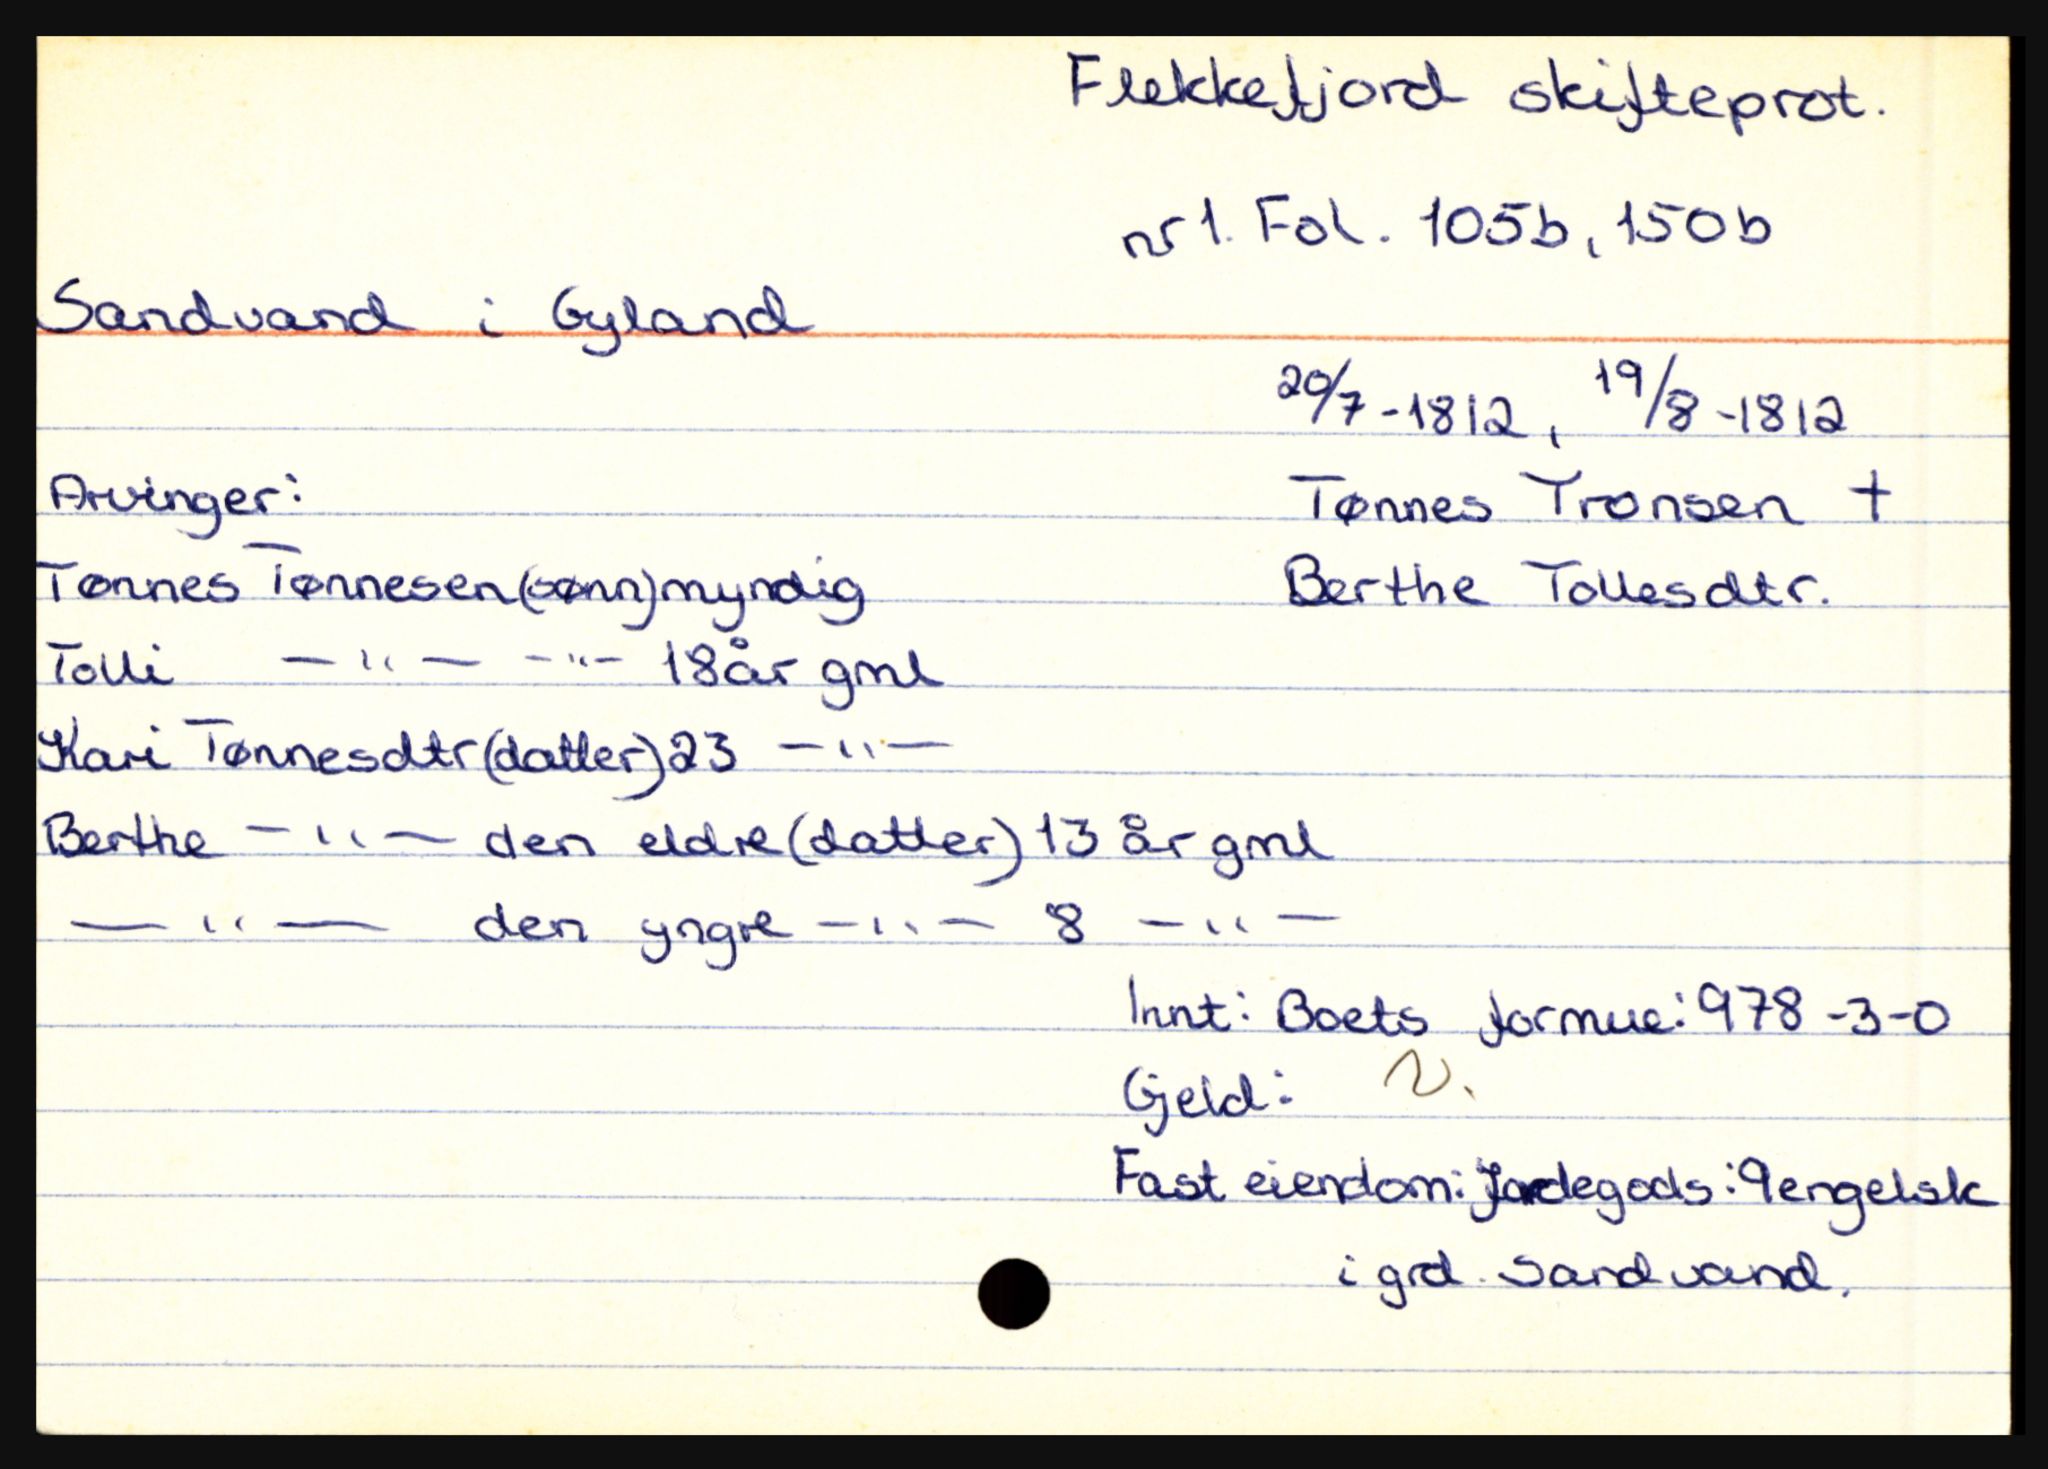 Flekkefjord skifteprot.
nr 1. Fol. 105b, 150b
Sandvand i Gyland
20/7-1812, 19/8-1812
Arvinger:
Tønnes Tronsen †
Tønnes Tønnesen (sønn) myndig
Berthe Tollesdtr.
Tolli —"— -"- 18 år gml
Kari Tønnesdtr (datter) 23 —"—
Berthe —"— den eldre (datter) 13 år gml
—"— den yngre —"— 8 —"—
Innt: Boets formue: 978-3-0
Gjeld:
Fast eiendom: Jordegods: 9 engelsk
i grd. Sandvand.